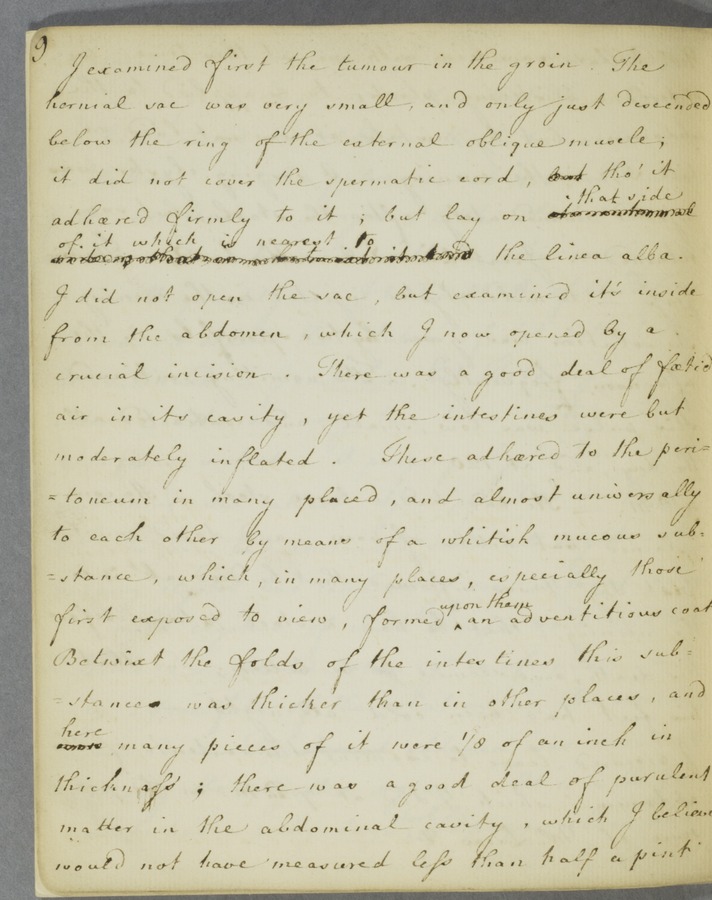 9
I examined first the tumour in the groin. The
hernial sac was very small, and only just descended
below the ring of the external oblique muscle;
it did not cover the spermatic cord, but tho' it
that side
adhæred firmly to it; but lay on
of it which is nearest to
the linea alba.
I did not open the sac, but examined it's inside
from the abdomen, which I now opened by a
crucial incision. There was a good deal of fœtid
air in its cavity, yet the intestines were but
moderately inflated. These adhæred to the peri=
=toneum in many placed, and almost universally
to each other by means of a whitish mucous sub=
=stance, which, in many places, especially those
upon them
first exposed to view, formed ^ an adventitious coat
Betwixt the folds of the intestines this sub=
=stance was thicker than in other places, and
here
many pieces of it were 1/8 of an inch in
thickness; there was a good deal of purulent
matter in the abdominal cavity, which I believe
would not have measured less than half a pint